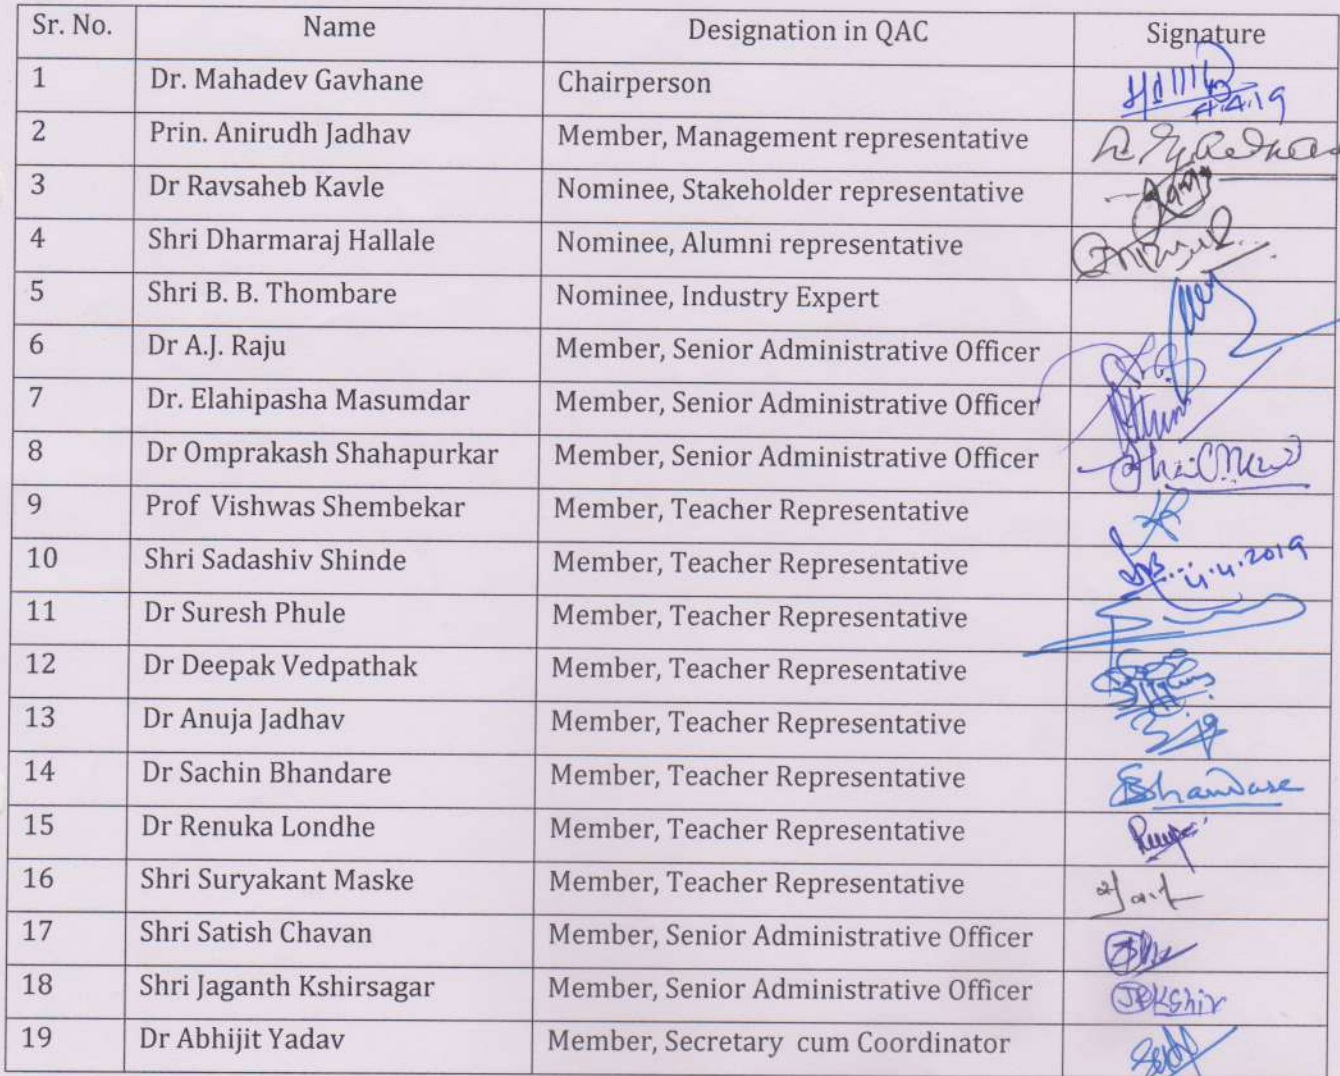 Sr. No. Name Designation in QAC Signature
1 Dr. Mahadev Gavhane Chairperson
4.4.19
2 Prin. Anirudh Jadhav Member, Management representative
3 Dr Ravsaheb Kavle Nominee, Stakeholder representative
4 Shri Dharmaraj Hallale Nominee, Alumni representative
5 Shri B. B. Thombare Nominee, Industry Expert
6 Dr A.J. Raju Member, Senior Administrative Officer
7 Dr. Elahipasha Masumdar Member, Senior Administrative Officer
8 Dr Omprakash Shahapurkar Member, Senior Administrative Officer
9 Prof Vishwas Shembekar Member, Teacher Representative
10 Shri Sadashiv Shinde Member, Teacher Representative 4.4.2019
11 Dr Suresh Phule Member, Teacher Representative
12 Dr Deepak Vedpathak Member, Teacher Representative
13 Dr Anuja Jadhav Member, Teacher Representative
14 Dr Sachin Bhandare Member, Teacher Representative Bhandare
15 Dr Renuka Londhe Member, Teacher Representative
16 Shri Suryakant Maske Member, Teacher Representative
17 Shri Satish Chavan Member, Senior Administrative Officer
18 Shri Jaganth Kshirsagar Member, Senior Administrative Officer
19 Dr Abhijit Yadav Member, Secretary cum Coordinator